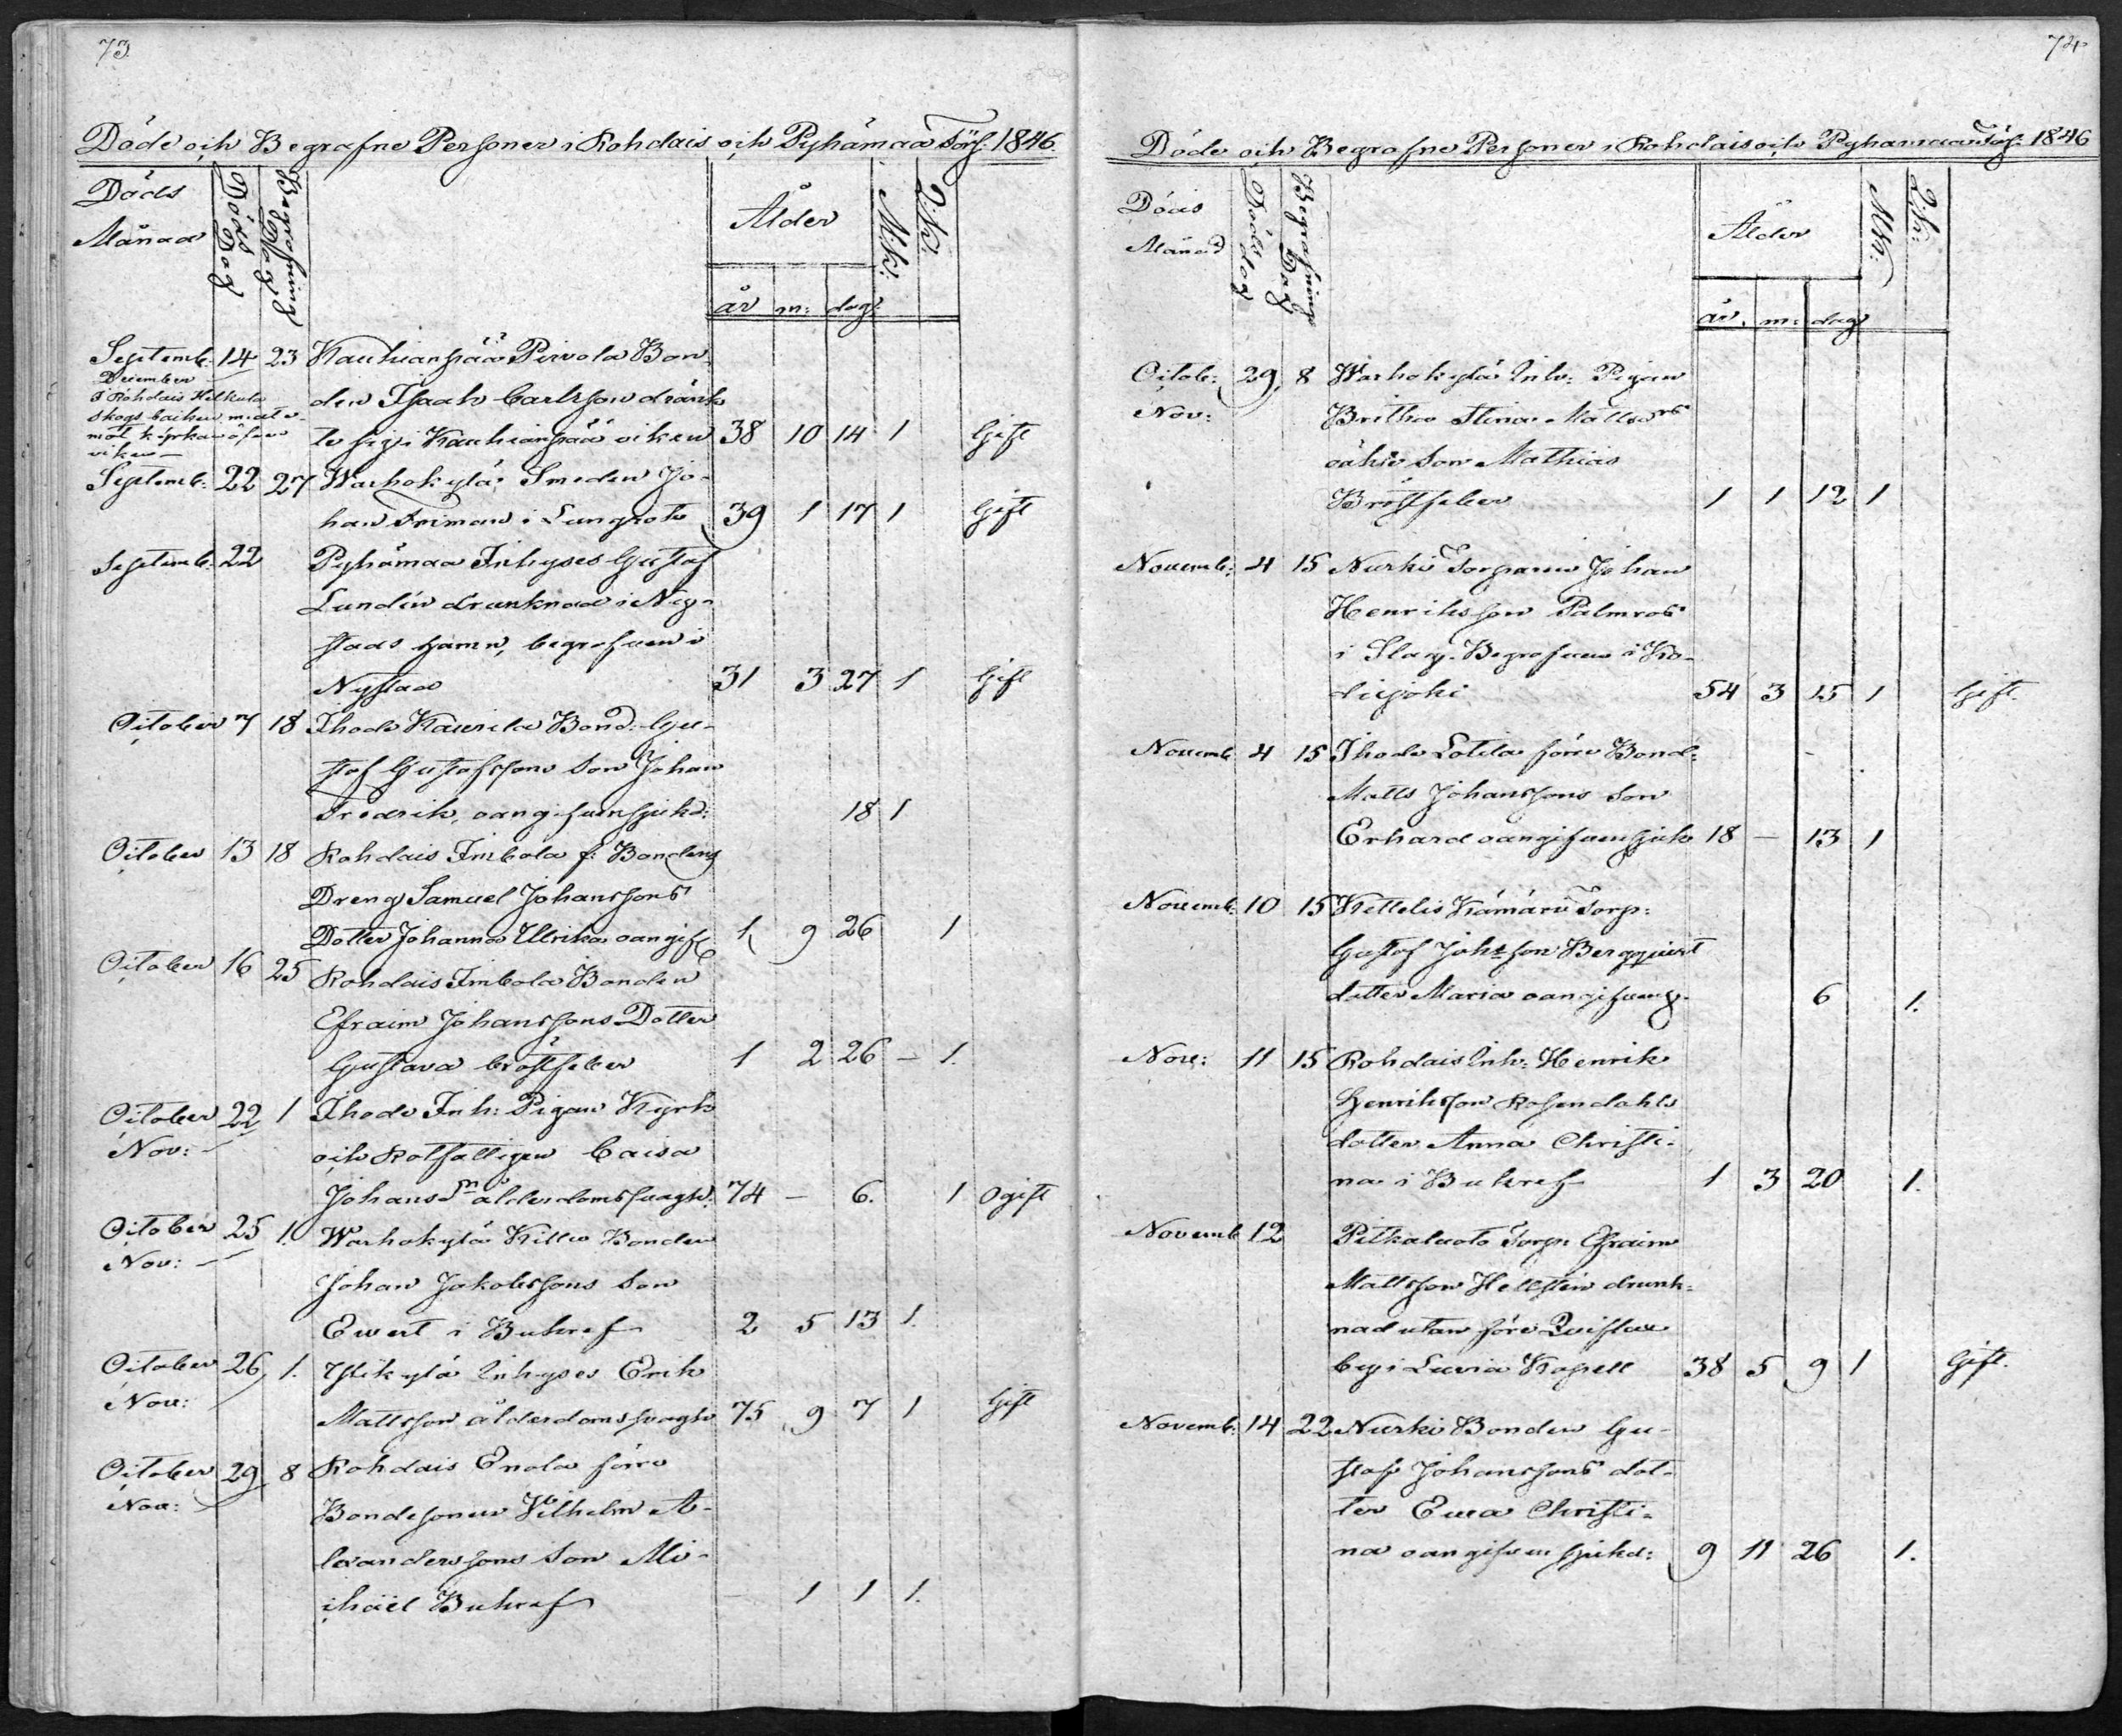 73
Döde och Begrafne Personer i Rohdais och Pyhämaa Förs: 1846
Döds Månad
Döds Dag
Begrafning Dag
Ålder
M:k:
Q:k:
år m: dag:
Septemb: 14 23 Kauhianpää Pirvola Bon
December
i Rohdais Hilkula
skogsbacken
mot kyrkan
viken
den Isaak Carlsson dränk
te sig i Kauhianpää viken 38 10 14 1 Gift
Septemb: 22 27 Warhokylä Smeden Jo-
han Friman i Lungsot 39 1 17 1 Gift
Septemb: 22 Pyhämaa Inhyses Gustaf
Lundén drunknad i Ny-
stads hamn, begrafven i
Nystad 31 3 27 1 Gift
October 7 18 Ihode Kaurila Bond: Gu-
staf Gustafssons Son Johan
Fredrik, oangifven sjukd: 18 1
October 13 18 Rohdais Imbola f: Bondens
Dreng Samuel Johanssons
Dotter Johanna Ulrika oangif 1 9 26 1
October 16 25 Rohdais Imbola Bonden
Efraim Johanssons Dotter
Gustava bröstfeber 1 2 26 – 1
October 22 1 Ihode Inh: Pigan Kyrk
Nov: –
och Rotfattigen Caisa
Johansdr ålderdomssvagh: 74 – 6. 1 Ogift
October 25 1. Warhokylä Killu Bonden
Nov: –
Johan Jakobssons Son
Ewert i Bukref 2 5 13 1.
October 26 1. Ylikylä Inhyses Erik
Nov:
Mattsson ålderdomssvagh 75 9 7 1 Gift
October 29 8 Rohdais Enola förre
Nov:
Bondesonen Vilhelm A-
lexanderssons Son Mi-
chaël Bukref – 1 1 1.
74
Döde och Begrafne Personer i Rohdais och Pyhämaa Förs: 1846
Döds Månad
Döds dag
Begrafnings Dag
Ålder
M:k:
Q:k:
år. m: dag
Octob: 29 8 Warhokylä Inh: Pigan
Nov:
Britha Stina Mattsdrs
oäkta Son Mathias
Bröstfeber 1 1 12 1
Novemb: 4 15 Nurki Torparen Johan
Henriksson Palmros
i Slag. Begrafven i Ko-
disjoki 54 3 15 1 Gift.
Novemb 4 15 Ihode Lotila förre Bond:
Matts Johanssons Son
Erhard oangifven sjuk 18 – 13 1
Novemb: 10 15 Kettelis Kämäri Torp:
Gustaf Johsson Bergqvist
dotter Maria oangifven 6 1.
Nov: 11 15 Rohdais Inh: Henrik
Henriksson Rosendahls
dotter Anna Christi-
na i Bukref 1 3 20 1.
Novemb 12 Pitkäluoto Torp: Efraim
Mattsson Hellstén drunk-
nad utan före
by i Luvia Kapell 38 5 9 1 Gift.
Novemb: 14 22 Nurki Bonden Gu-
staf Johanssons dot-
ter Ewa Christi-
na oangifven sjukd: 9 11 26 1.